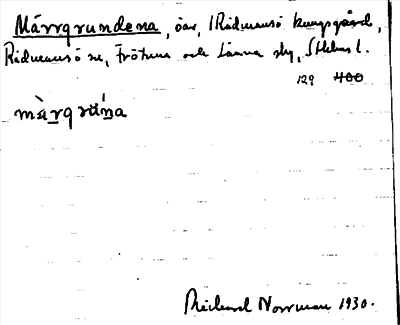 Märrgrundena, öar, i Rådmansö kungsgård,
Rådmansö sn, Frötuna och Länna skg, Sthlms l.
129 400
màrgrúna
Richard Norrman 1930.